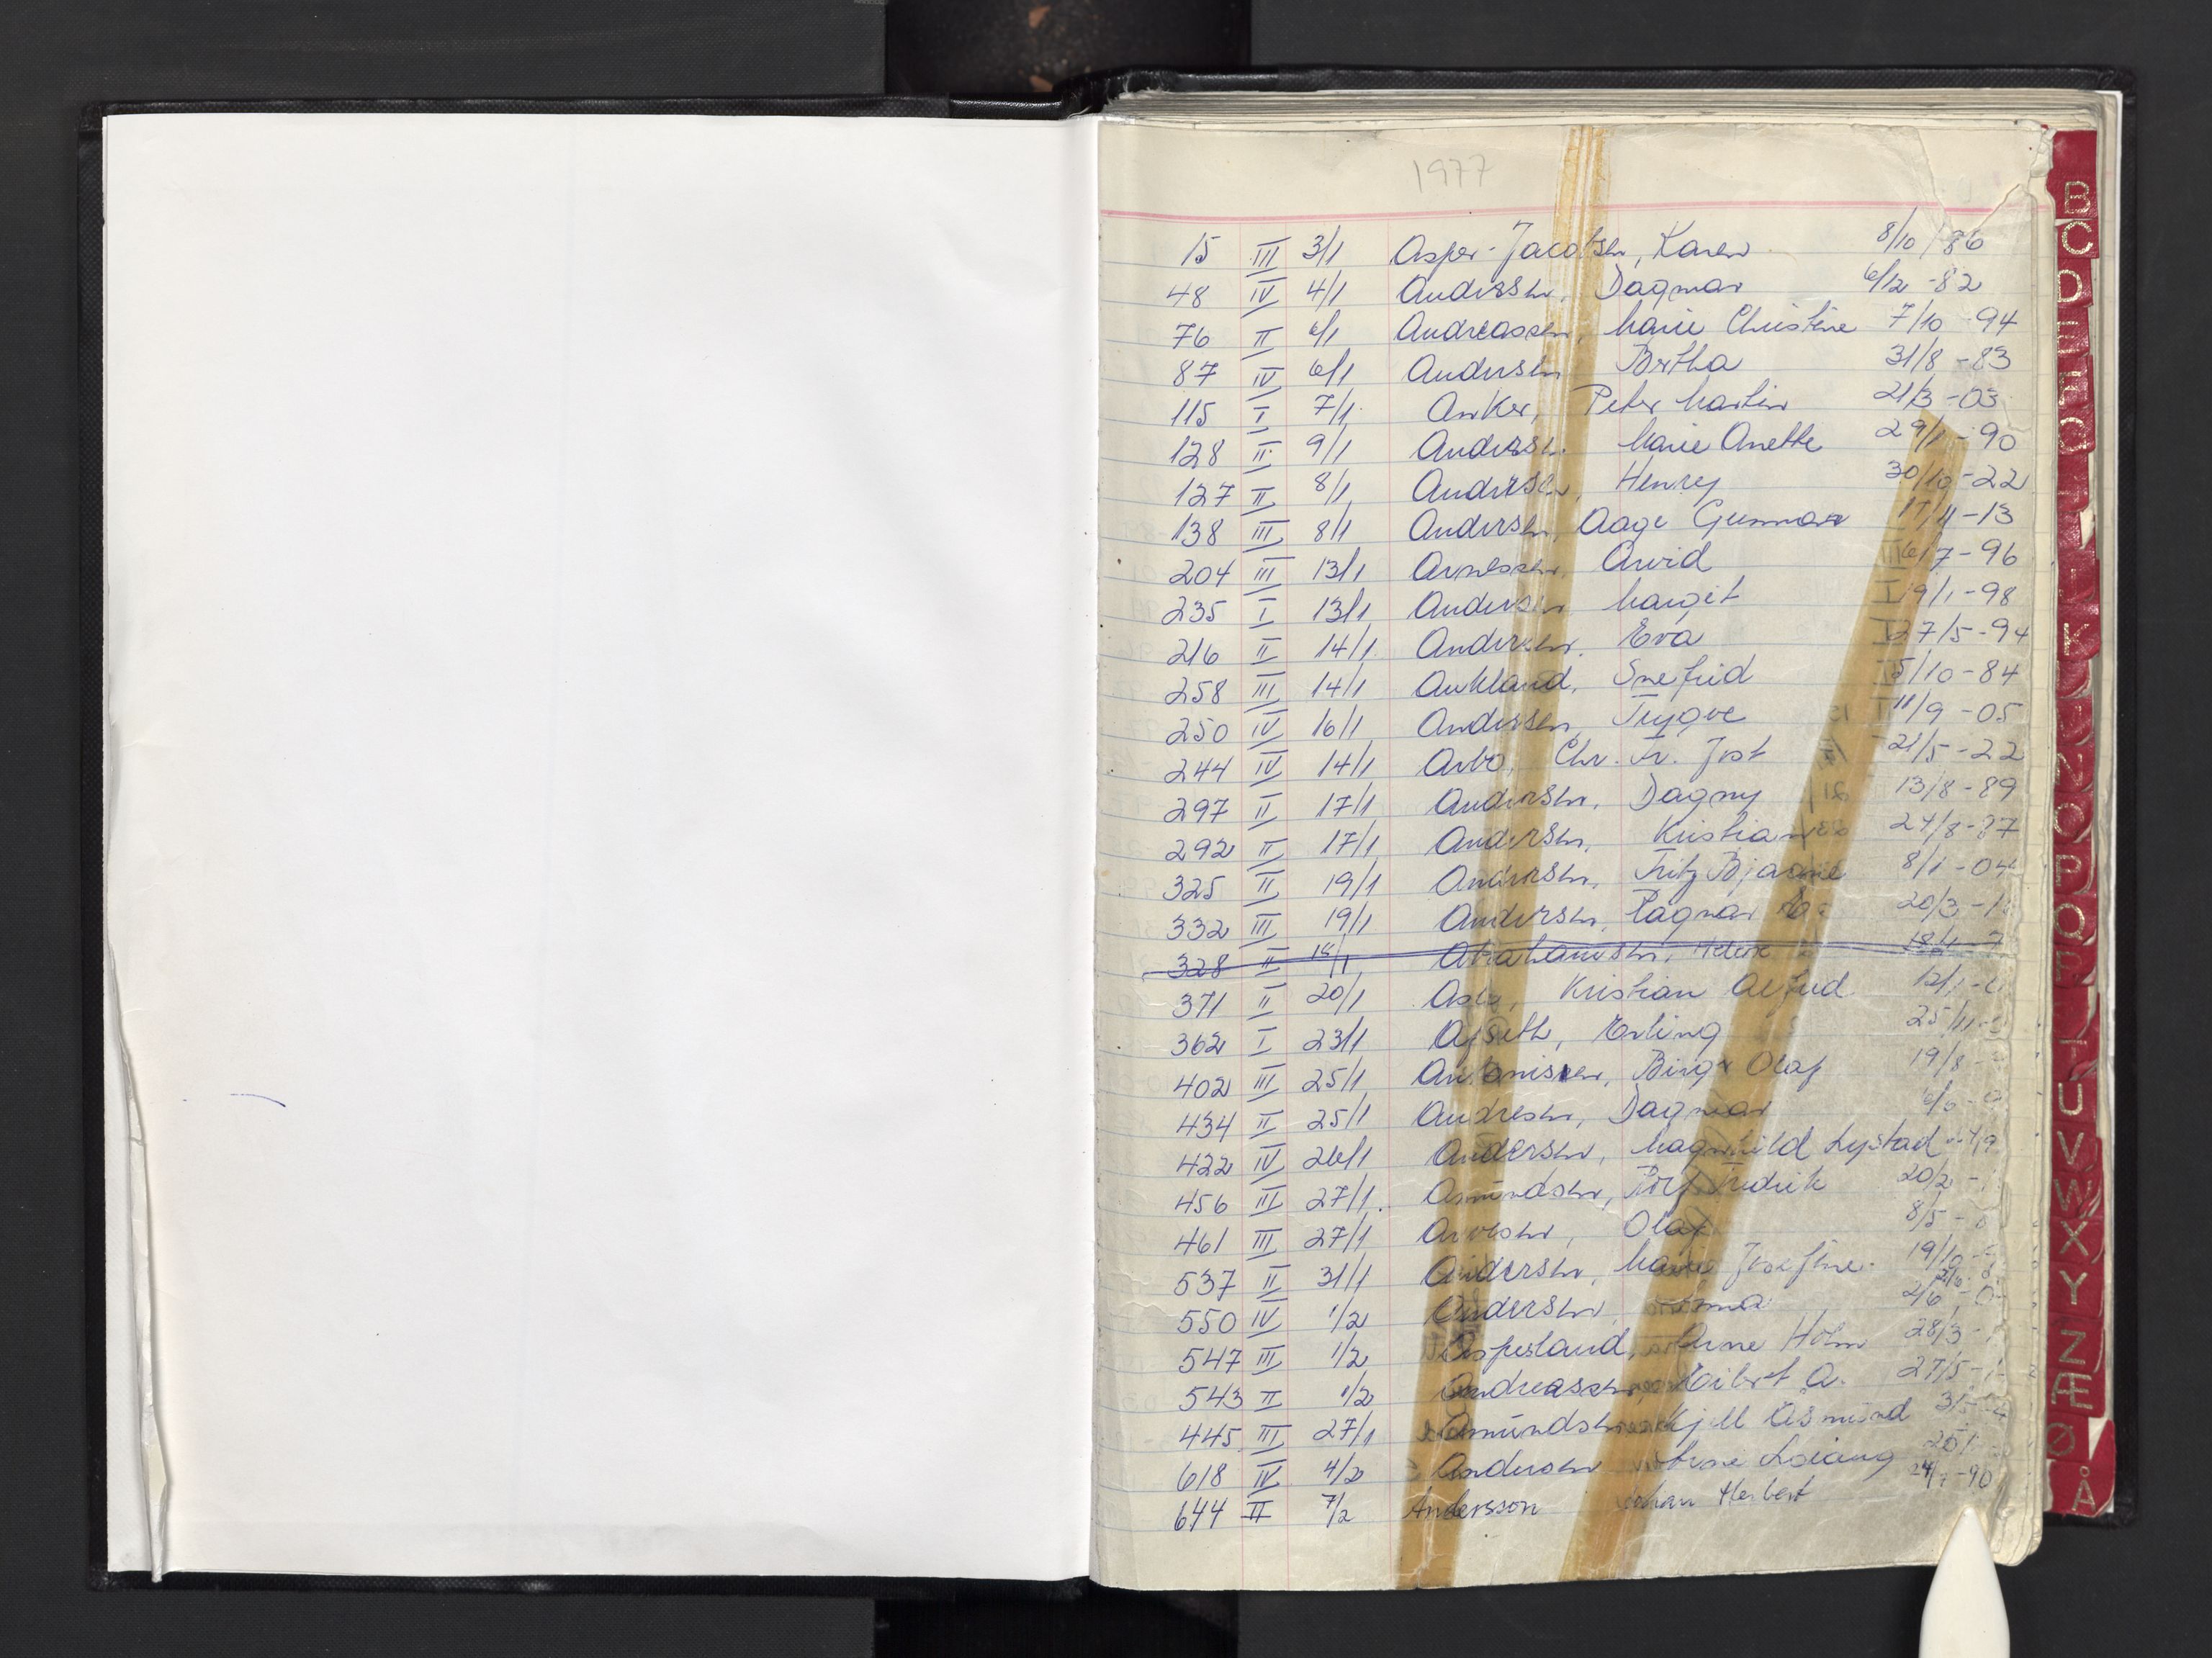 1977
15 III 3/1 Asper-Jacobsen, Karen 8/10 86
48 IV 4/1 Andersen, Dagmar 6/12 -82
76 II 6/1 Andreassen, Marie Christine 7/10 -94
87 IV 6/1 Andersen Bertha 31/8 -83
115 I 7/1 Anker, Peter Martin 21/3 -03
128 II 9/1 Andersen. Marie Anette 29/1 -90
127 II 8/1 Andersen, Henry 30/10 -22
138 III 8/1 Andersen, Aage Gunnar 17/11 -13
204 III 13/1 Arnessen, Arvid 6/7 -96
235 I 13/1 Andersen Margit 9/1 -98
216 II 14/1 Andersen. Eva 27/5 -94
258 III 14/1 Aukland, Snefrid 5/10 -84
250 IV 16/1 Andersen, Trygve 11/9 -05
244 IV 14/1 Arbo, Chr. Fr. Jost 21/5 -22
297 II 17/1 Andersen, Dagny 13/8 -89
292 II 17/1 Andersen, Kristian 24/8 -87
325 II 19/1 Andersen, Fritz Bjarne 8/1 -04
332 III 19/1 Andersen, Ragnar 20/3
328 II Abrahamsen, Helene
371 II 20/1 Kristian Alfred
362 I 23/1 Erling 25/11
402 III 25/1 Antonissen, Birger Olaf 19/8
434 II 25/1 Andresen, Dagmar
422 IV 26/1 Andersen, Magnhild Lystad
456 III 27/1 Asmundsen, Rolf Fredrik 20/2
461 III 27/1 Arnesen, Olaf 8/5
537 II 31/1 Andersen, Marie Josefine 19/10
550 IV 1/2 Andersen, 2/6
547 III 1/2 Aspesland, Arne Holm 28/3
543 II 1/2 Andreassen, A. 27/5
445 III 27/1 Asmundsen, Kjell Asmund
618 IV 4/2 Andersen
644 II 7/2 Andersson Johan Herbert 24/7 -90
B
C
D
K
N
O
P
Q
U
V
W
X
Y
Z
Æ
Ø
Å